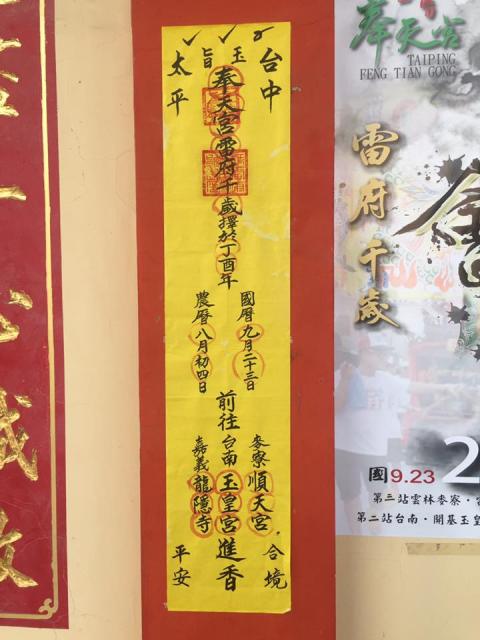 玉旨
台中
太平
奉天宮雷府千歲擇於丁酉年
國曆九月二十三日
農曆八月初四日
前往
麥寮順天宮
台南玉皇宮進香
嘉義龍隱寺
合境
平安
奉天宮
TAIPING
FENG TIAN GONG
雷府千歲
國9.23
第三站雲林麥寮・
第二站台南・開基玉皇
心誠